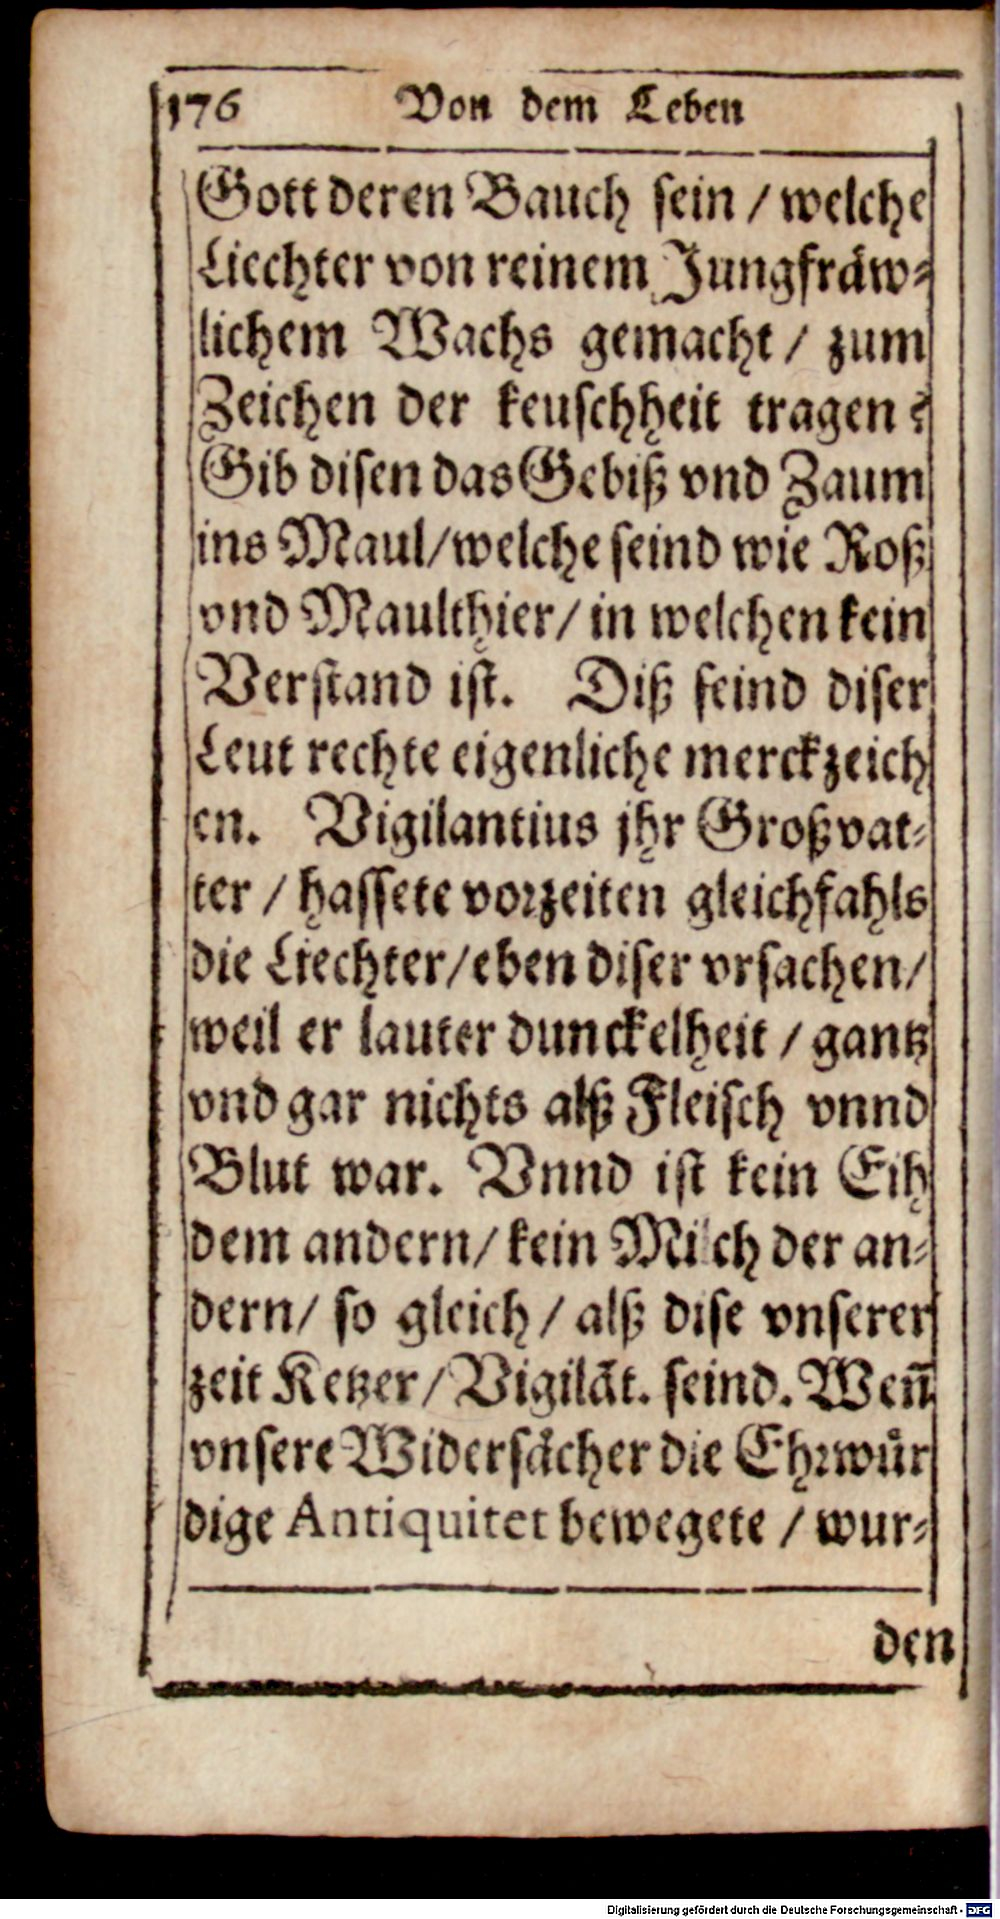 176 Von dem Leben
Gott deren Bauch sein / welche
Liechter von reinem Jungfräw⸗
lichem Wachs gemacht / zum
Zeichen der keuschheit tragen?
Gib disen das Gebiß vnd Zaum
ins Maul/welche seind wie Roß
vnd Maulthier/ in welchen kein
Verstand ist. Diß seind diser
Leut rechte eigenliche merckzeich
en. Vigilantius jhr Großvat⸗
ter / hassete vorzeiten gleichfahls
die Liechter/eben diser vrsachen/
weil er lauter dunckelheit / gantz
vnd gar nichts alß Fleisch vnnd
Blut war. Vnnd ist kein Eih
dem andern/ kein Milch der an⸗
dern/ so gleich / alß dise vnserer
zeit Ketzer/Vigilãt. seind. Weñ
vnsere Widersächer die Ehrwür
dige Antiquitet bewegete / wur⸗
den
Digitalisierung gefördert durch die Deutsche Forschungsgemeinschaft - DFG